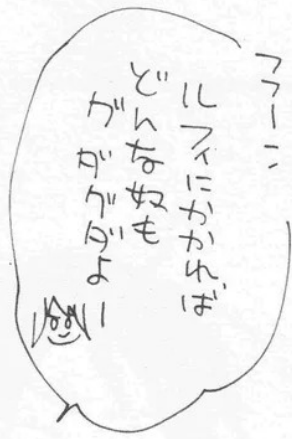 フフーン
ルフィにかかれば
どんな奴も
ガダグダよー